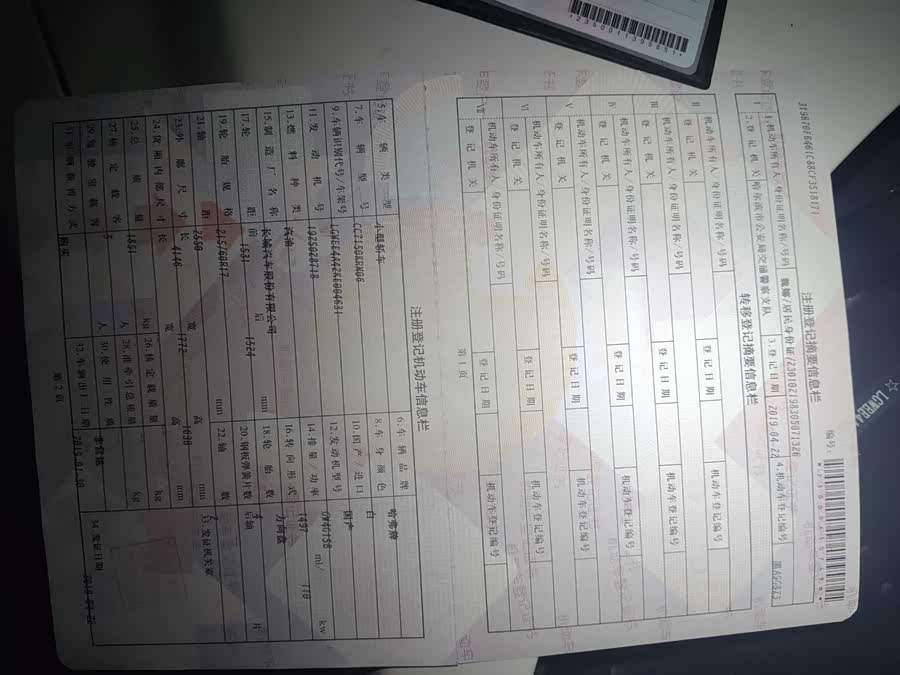 319870F8461C68CF3518171
注册登记摘要信息栏
编号:
I
1.机动车所有人/身份证明名称/号码
2.登记机关
哈尔滨市公安局交通警察支队
3.登记日期
2019-04-22
4.机动车登记编号
转移登记摘要信息栏
II
机动车所有人/身份证明名称/号码
登记机关
登记日期
机动车登记编号
III
机动车所有人/身份证明名称/号码
登记机关
登记日期
机动车登记编号
IV
机动车所有人/身份证明名称/号码
登记机关
登记日期
机动车登记编号
V
机动车所有人/身份证明名称/号码
登记机关
登记日期
机动车登记编号
VI
机动车所有人/身份证明名称/号码
登记机关
登记日期
机动车登记编号
VII
机动车所有人/身份证明名称/号码
登记机关
登记日期
机动车登记编号
第 1 页
注册登记机动车信息栏
5.车辆类型 小型轿车 6.车辆品牌 哈弗牌
7.车辆型号 8.车身颜色
9.车辆识别代号/车架号 10.国产/进口 国产
11.发动机号 1925028718 12.发动机型号
13.燃料种类 汽油 14.排量/功率 1497 ml/ 110 kw
15.制造厂名称 长城汽车股份有限公司 16.转向形式 方向盘
17.轮距 前 1531 后 1524 mm 18.轮胎数 4
19.轮胎规格 215/60R17 20.钢板弹簧片数 后轴 片
21.轴距 2550 mm 22.轴数 2
23.外廓尺寸 长 宽 1772 高 1638 mm 33.发证机关章
24.货厢内部尺寸 长 宽 高 mm
25.总质量 1851 kg 26.核定载质量 kg
27.核定载客 5 人 28.准牵引总质量 kg
29.驾驶室载客 人 30.使用性质 非营运
31.车辆获得方式 购买 32.车辆出厂日期
34.发证日期 2019-04-22
第 2 页